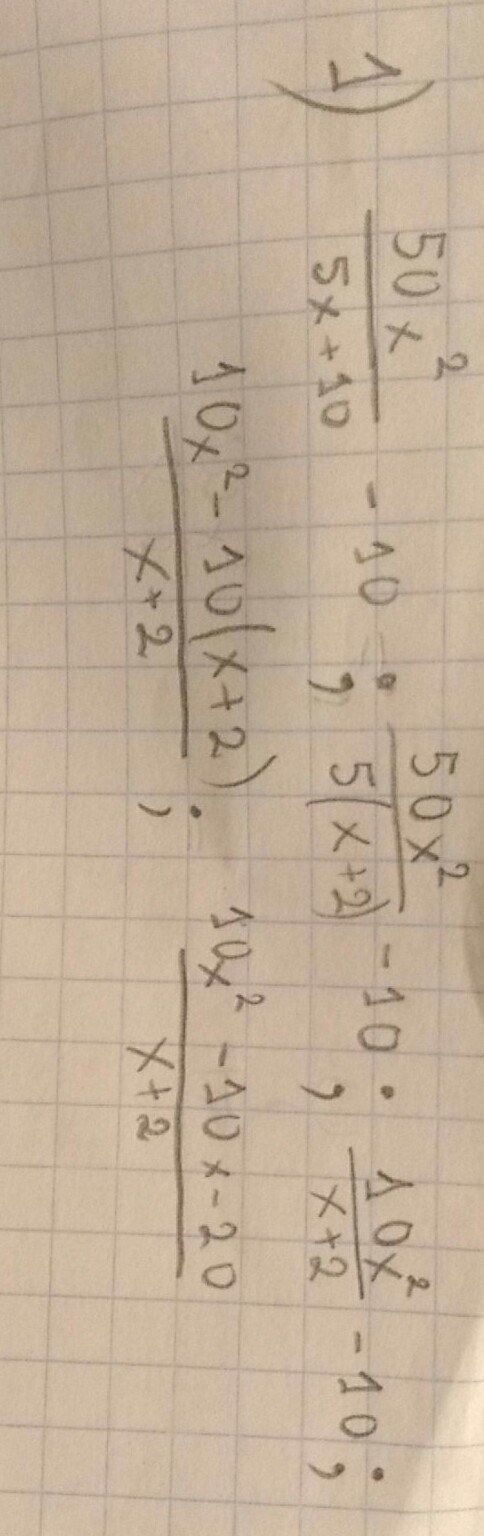 1) 50x²/(5x+10) - 10 ; 50x²/(5(x+2)) - 10 ; 10x²/(x+2) - 10 ;
(10x² - 10(x+2))/(x+2) ; (10x² - 10x - 20)/(x+2)